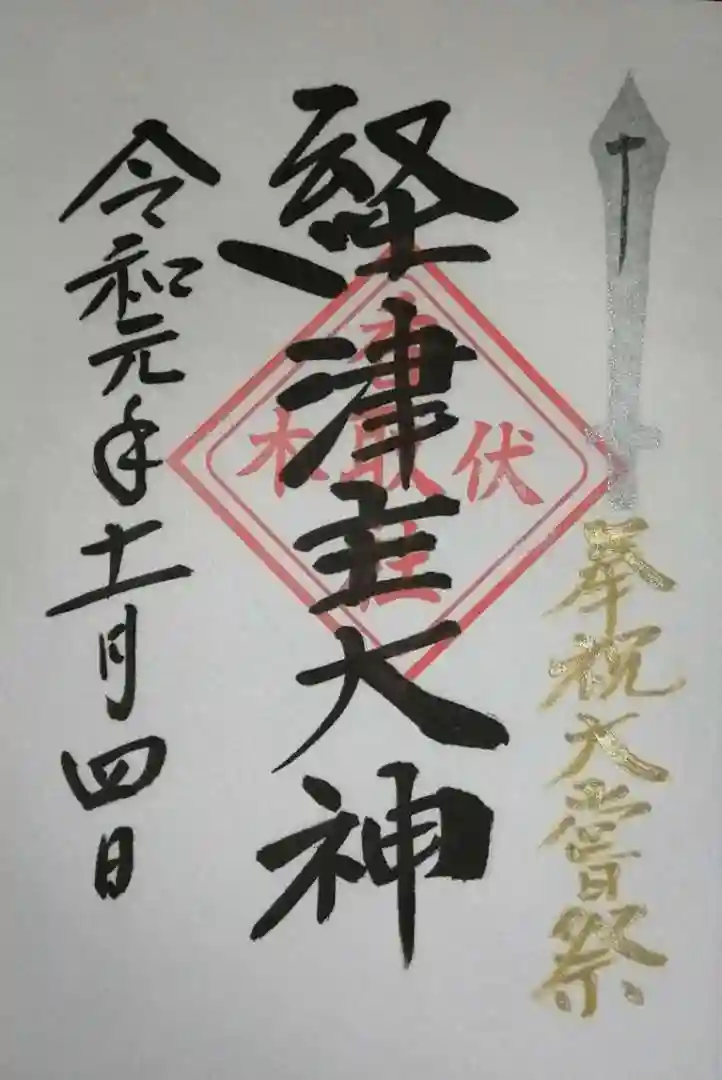 奉祝大嘗祭
経津主大神
伏木
香取社
令和元年十一月四日